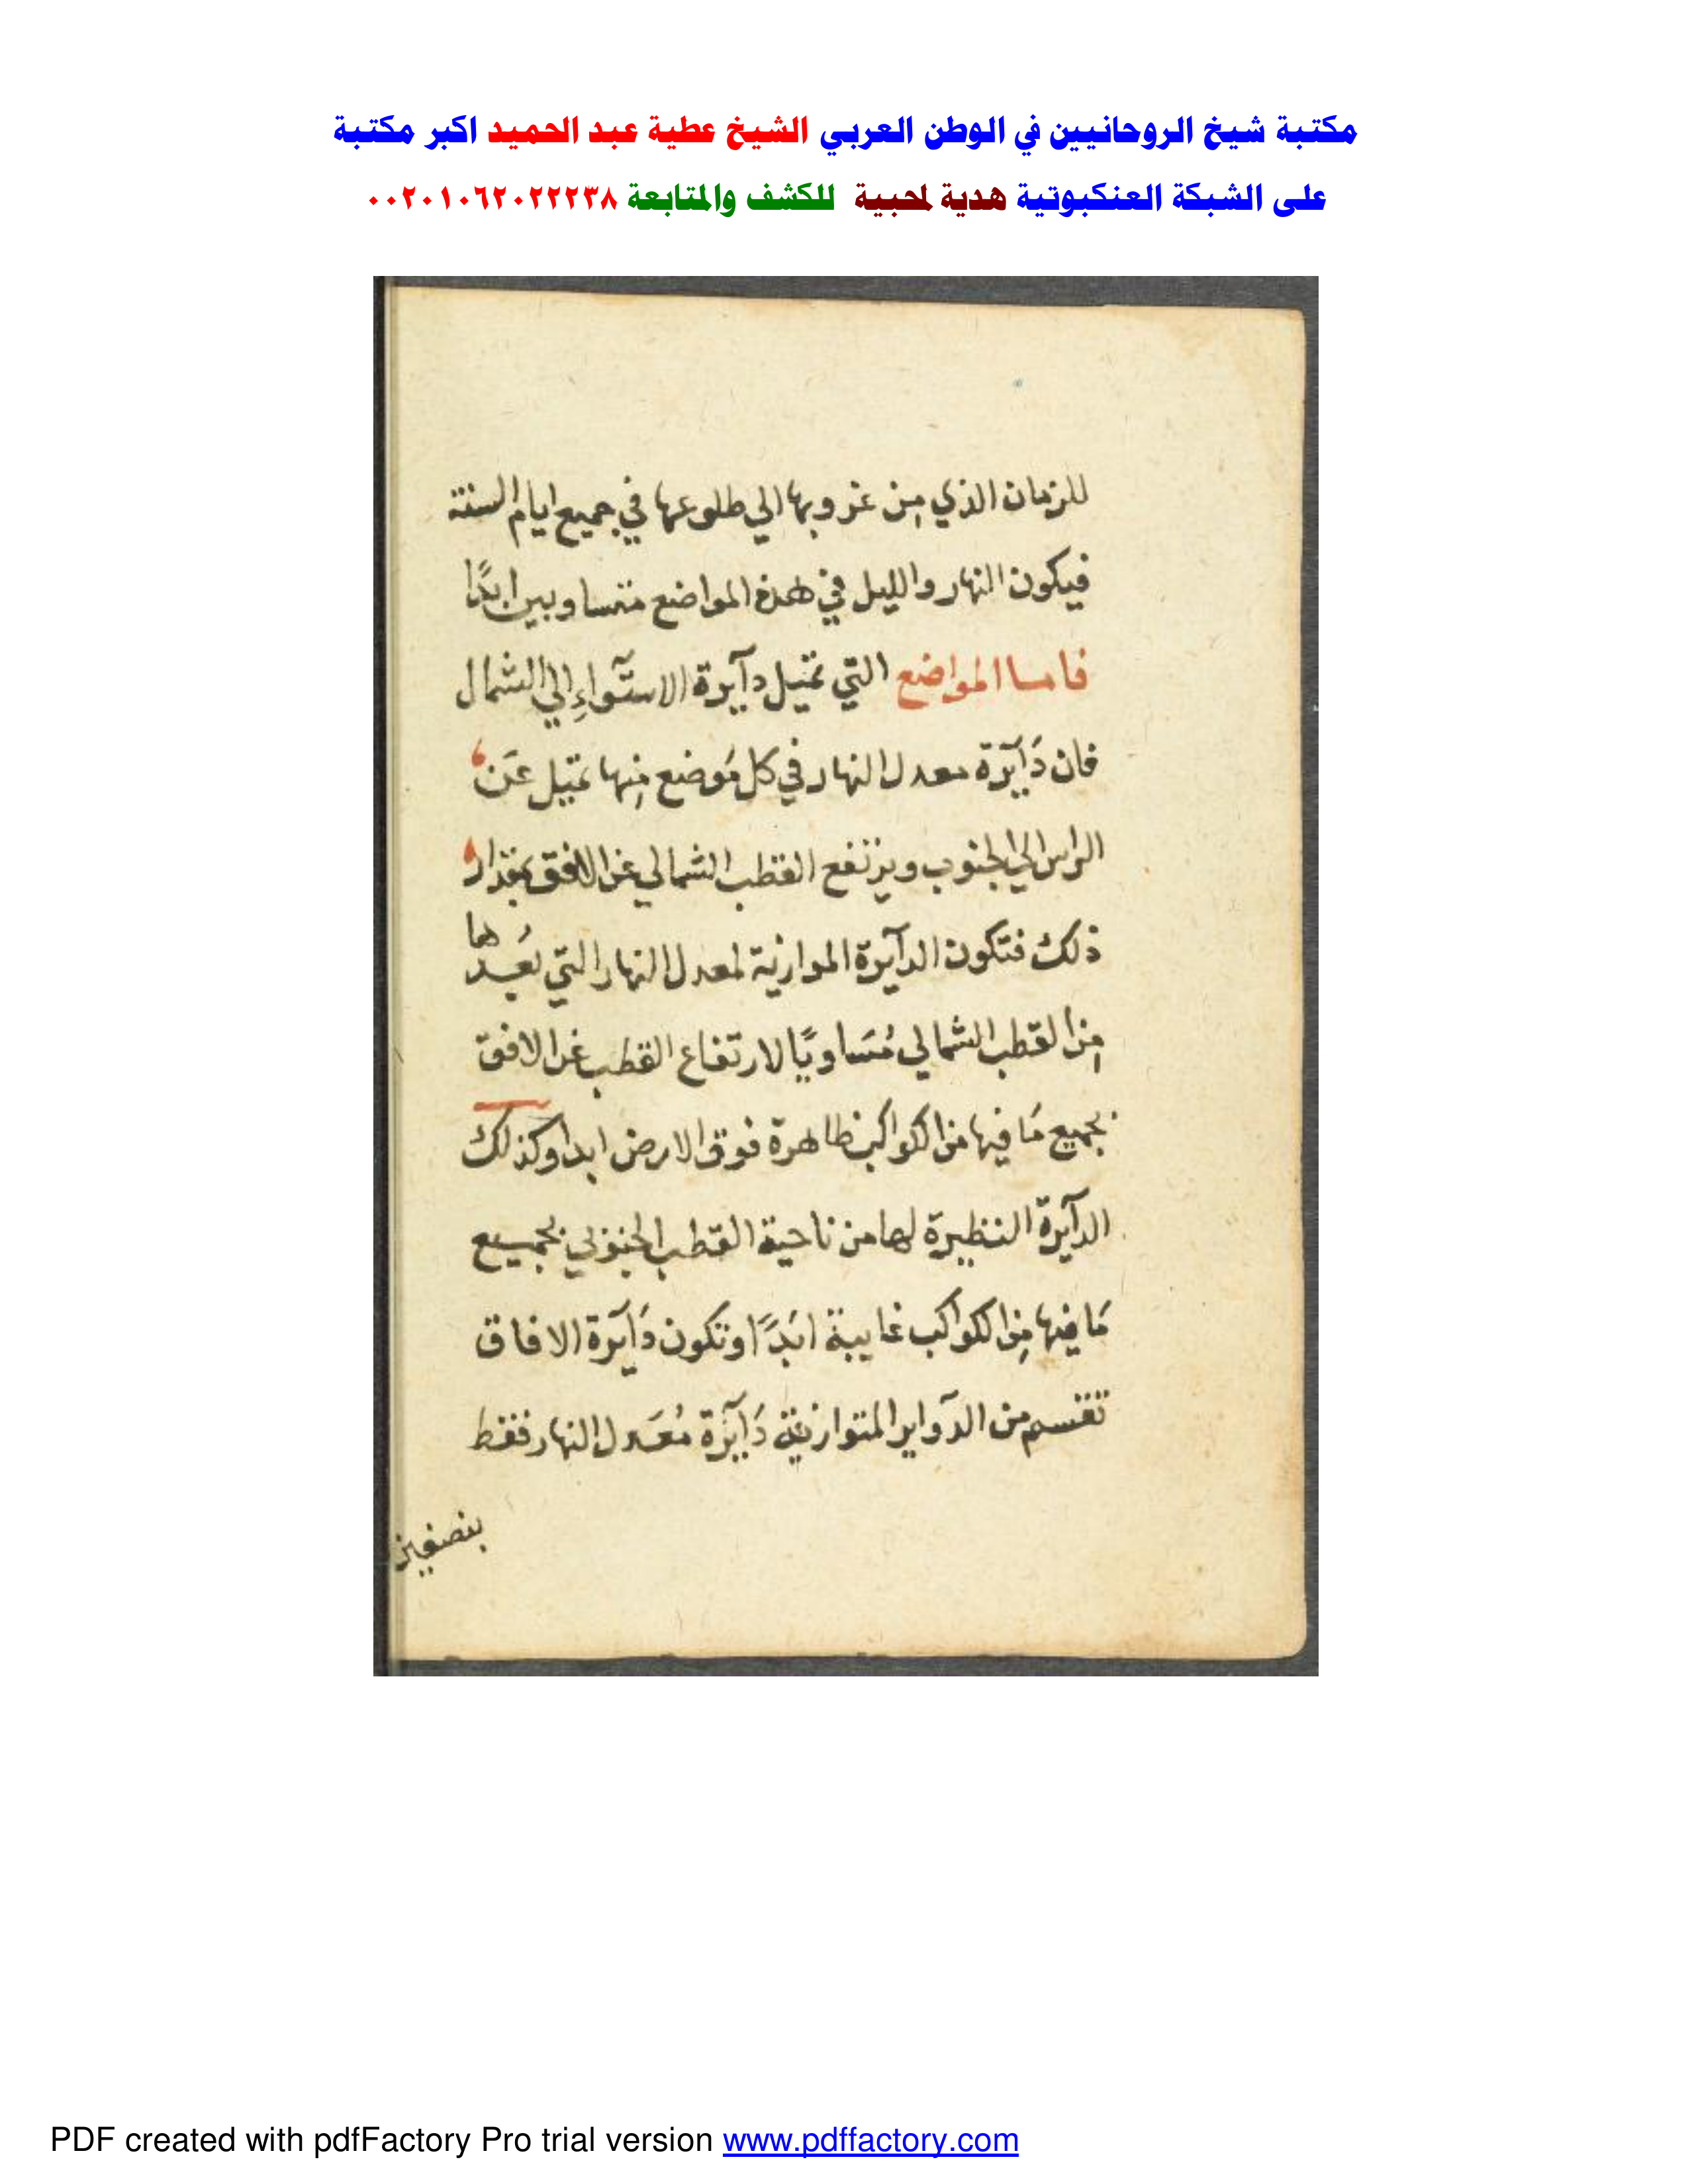 مكتبة شيخ الروحانيين في الوطن العربي الشيخ عطية عبد الحميد اكبر مكتبة
على الشبكة العنكبوتية هدية لمحبية للكشف والمتابعة ٠٠٢٠١٠٦٢٠٢٢٢٣٨
للزمان الذي مِن غروبها الي طلوعها في جميع ايام السنة
فيكون النهار والليل في هذه المواضع متساويين ابدًا
فامسا المواضع التي تميل دآيرة الاستوآءِ الي الشمال
فان دَآيَرة معدل النهار في كل مَوضع مِنها تميل عَن
الراس الي الجنوب ويرتفع القطب الشمالي عن الافق بمقدار
ذلك فتكون الدآيرة الموازية لمعدل النهار التي بُعدها
مِن القطب الشمالي مُسَاويًا لارتفاع القطب عن الافق
بجميع مَا فيها من الكواكب ظاهرة فوق الارض ابدا وكذلك
الدآيرة النظيرة لها من ناحية القطب الجنوبي بجميع
مَا فيها مِن الكواكب غايبة ابَدًا وتكون دَآيَرة الافاق
تقسم من الدَواير المتوازية دَآيَرة مُعَدل النهار فقط
بنصفين
PDF created with pdfFactory Pro trial version www.pdffactory.com